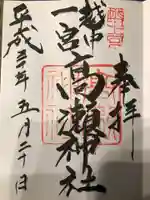 奉拝
越中
一宮 高瀬神社
平成三十年五月二十日